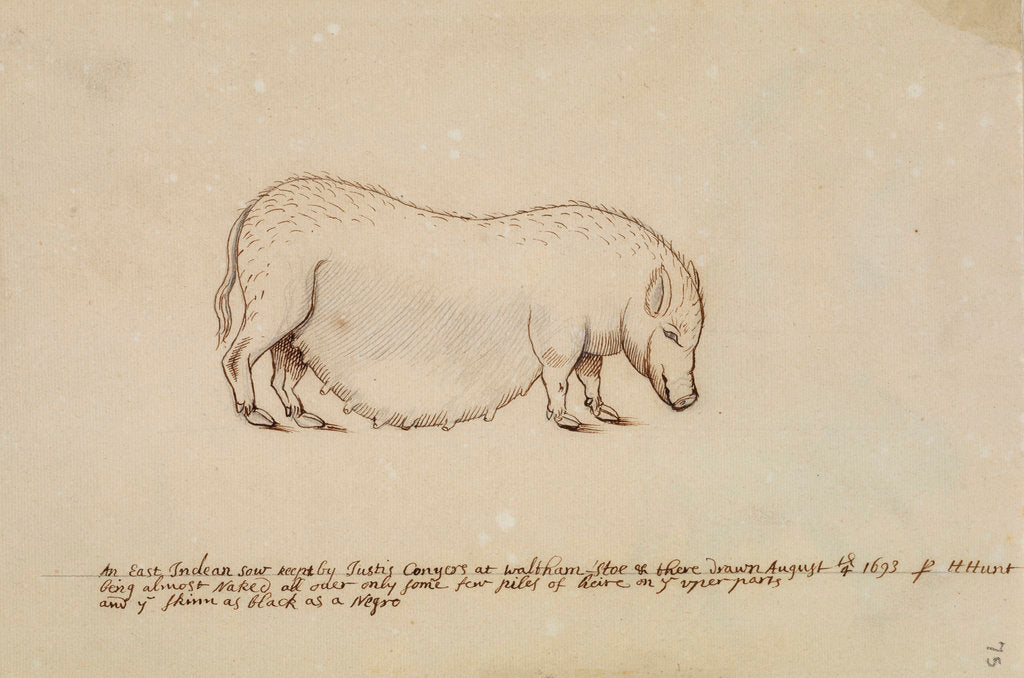 An East Indean sow keept by Justis Conyers at waltham-stoe & there drawn August the 4 1693 P HHunt
being almost Naked all ouer only some few piles of heire on ye vper parts
and ye skinn as black as a Negro
57